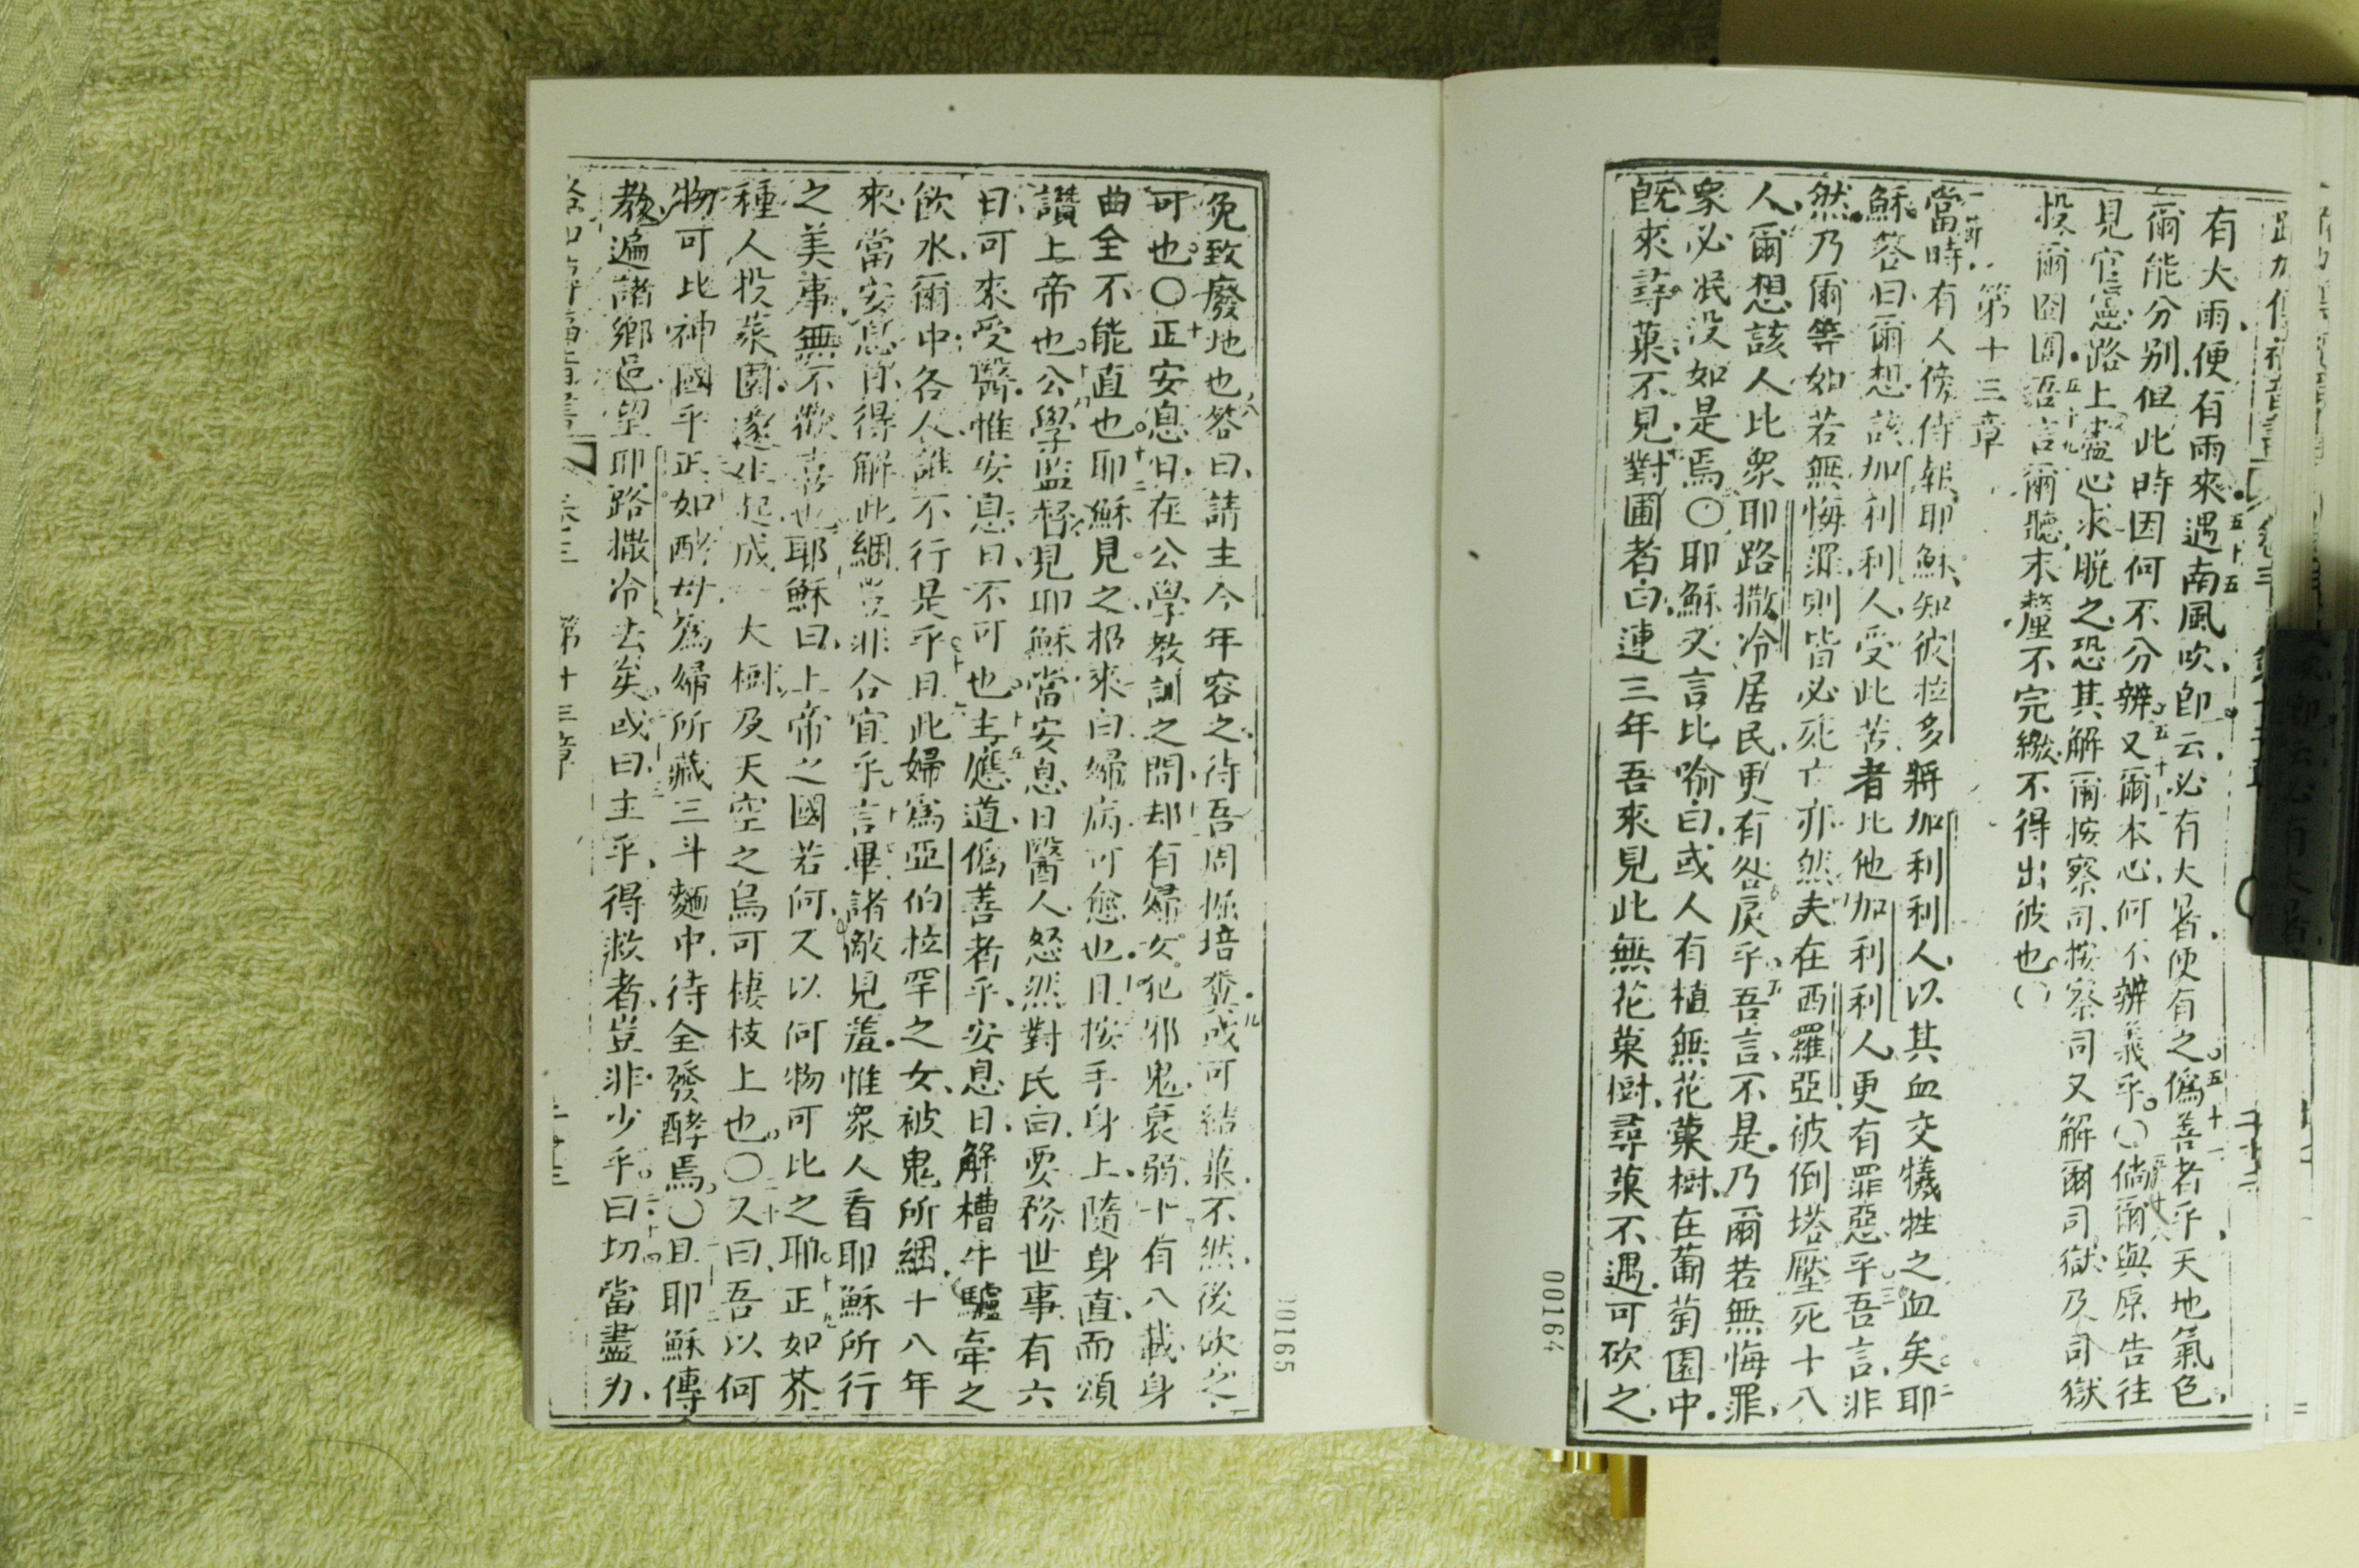 有大雨便有雨來遇南風吹卽云必有大暑便有之僞善者乎天地氣色
爾能分别但此時因何不分辨又爾本心何不辨義乎〇倘爾與原告往
見官憲路上盡心求脫之恐其解爾按察司按察司又解爾司獄及司獄
投爾囹圄吾言爾聽末釐不完繳不得出彼也〇
第十三章
當時有人傍侍報耶穌知彼拉多將加利利人以其血交犧牲之血矣耶
穌答曰爾想該加利利人受此苦者比他加利利人更有罪惡乎吾言非
然乃爾等如若無悔罪則皆必死亡亦然夫在西羅亞彼倒塔壓死十八
人爾想該人比衆耶路撒冷居民更有咎戾乎吾言不是乃爾若無悔罪
衆必泯没如是焉〇耶穌又言比喻曰或人有植無花菓樹在葡萄園中
旣來尋菓不見對圃者曰連三年吾來見此無花菓樹尋菓不遇可砍之
00164
免致廢地也答曰請主今年容之待吾周掘培糞或可結菓不然後砍之
可也〇正安息日在公學教訓之間却有婦女犯邪鬼衰弱十有八載身
曲全不能直也耶穌見之招來曰婦病可愈也且按手身上隨身直而頌
讚上帝也公學監督見耶穌當安息日醫人怒然對民曰要務世事有六
日可來受醫惟安息日不可也主應道僞善者乎安息日解槽牛驢牽之
飲水爾中各人誰不行是乎且此婦爲亞伯拉罕之女被鬼所綑十八年
來當安息日得解此綑豈非合宜乎言畢諸敵見羞惟衆人看耶穌所行
之美事無不歡喜也耶穌曰上帝之國若何又以何物可比之耶正如芥
種人投菜園遂生起成一大樹及天空之鳥可棲枝上也〇又曰吾以何
物可比神國乎正如酵母爲婦所藏三斗麵中待全發酵焉〇且耶穌傳
教遍諸鄉邑望耶路撒冷去矣或曰主乎得救者豈非少乎曰切當盡力
卷三 第十三章
0165